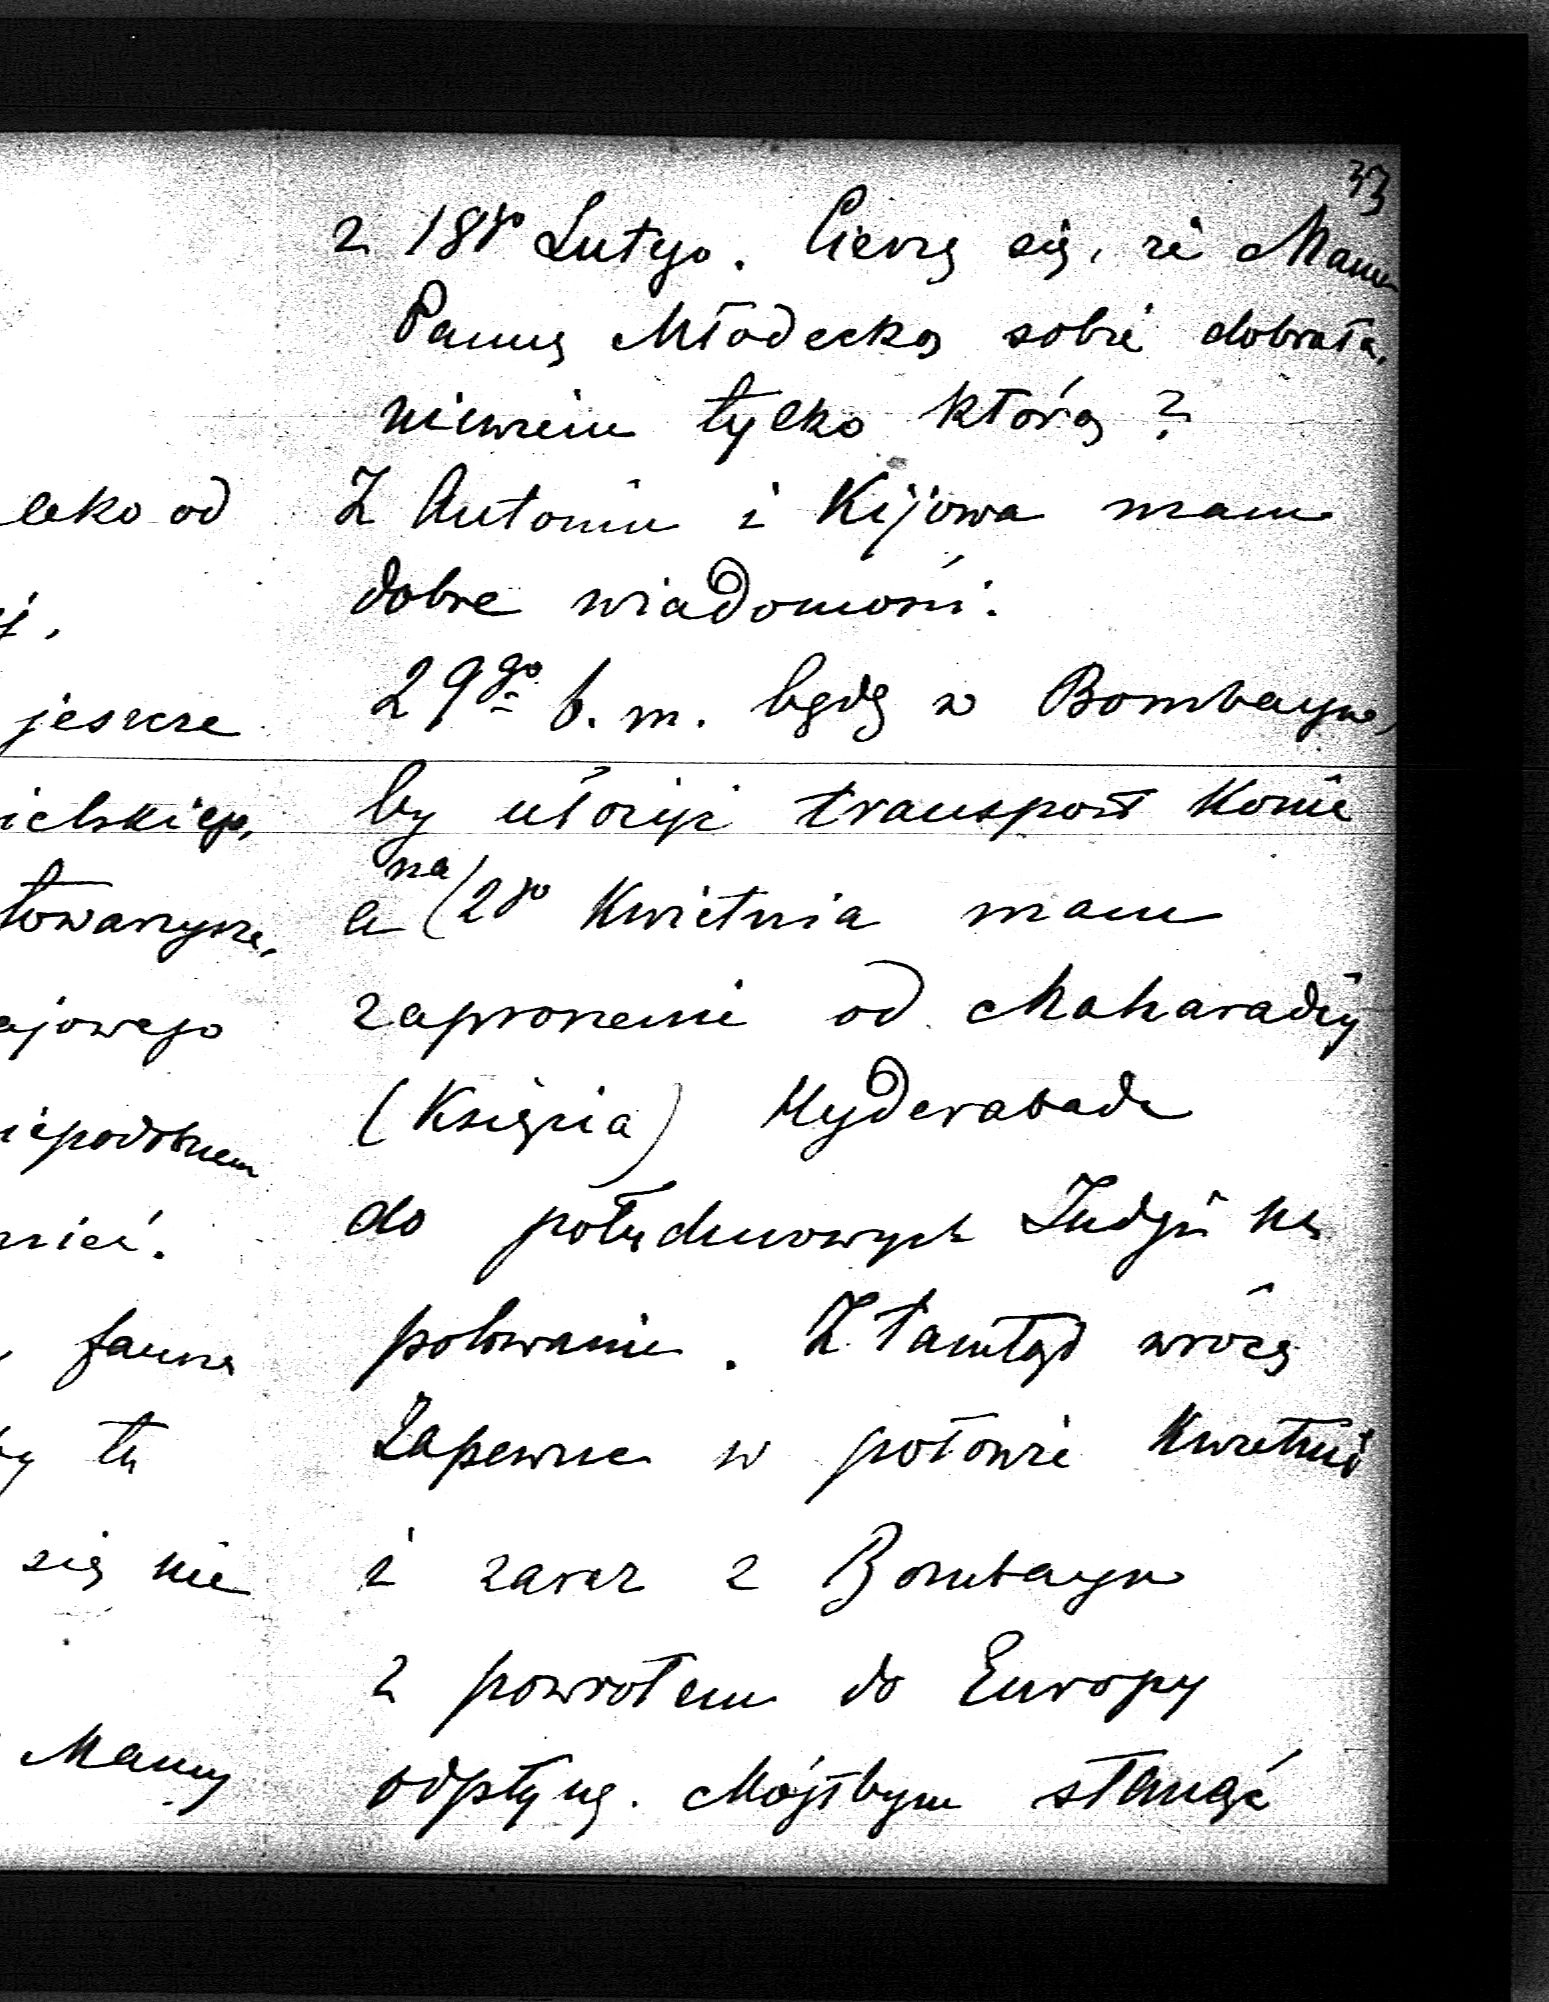 33
z 18go Lutego. Cieszę się, że Mama
Pannę Młodecką sobie dobrała,
niewiem tylko którą?
Z Antonin i Kijowa mam
dobre wiadomości.
29go b. m. będę w Bombayu,
by ułożyć transport Konie
a na (2go Kwietnia mam
zaproszenie od Maharadży
(Księcia) Hyderabadu
do południowych Indyi na
polowanie. Z tamtąd wrócę
Zapewne w połowie Kwietnia
i zaraz z Bombayu
z powrotem do Europy
odpłynę. Mógłbym stanąć
leko od
j.
jeszcze
ielskiego,
towarzysza,
ajowego
iepodobnem
mieć.
fauna
y tu
się nie
Mamy